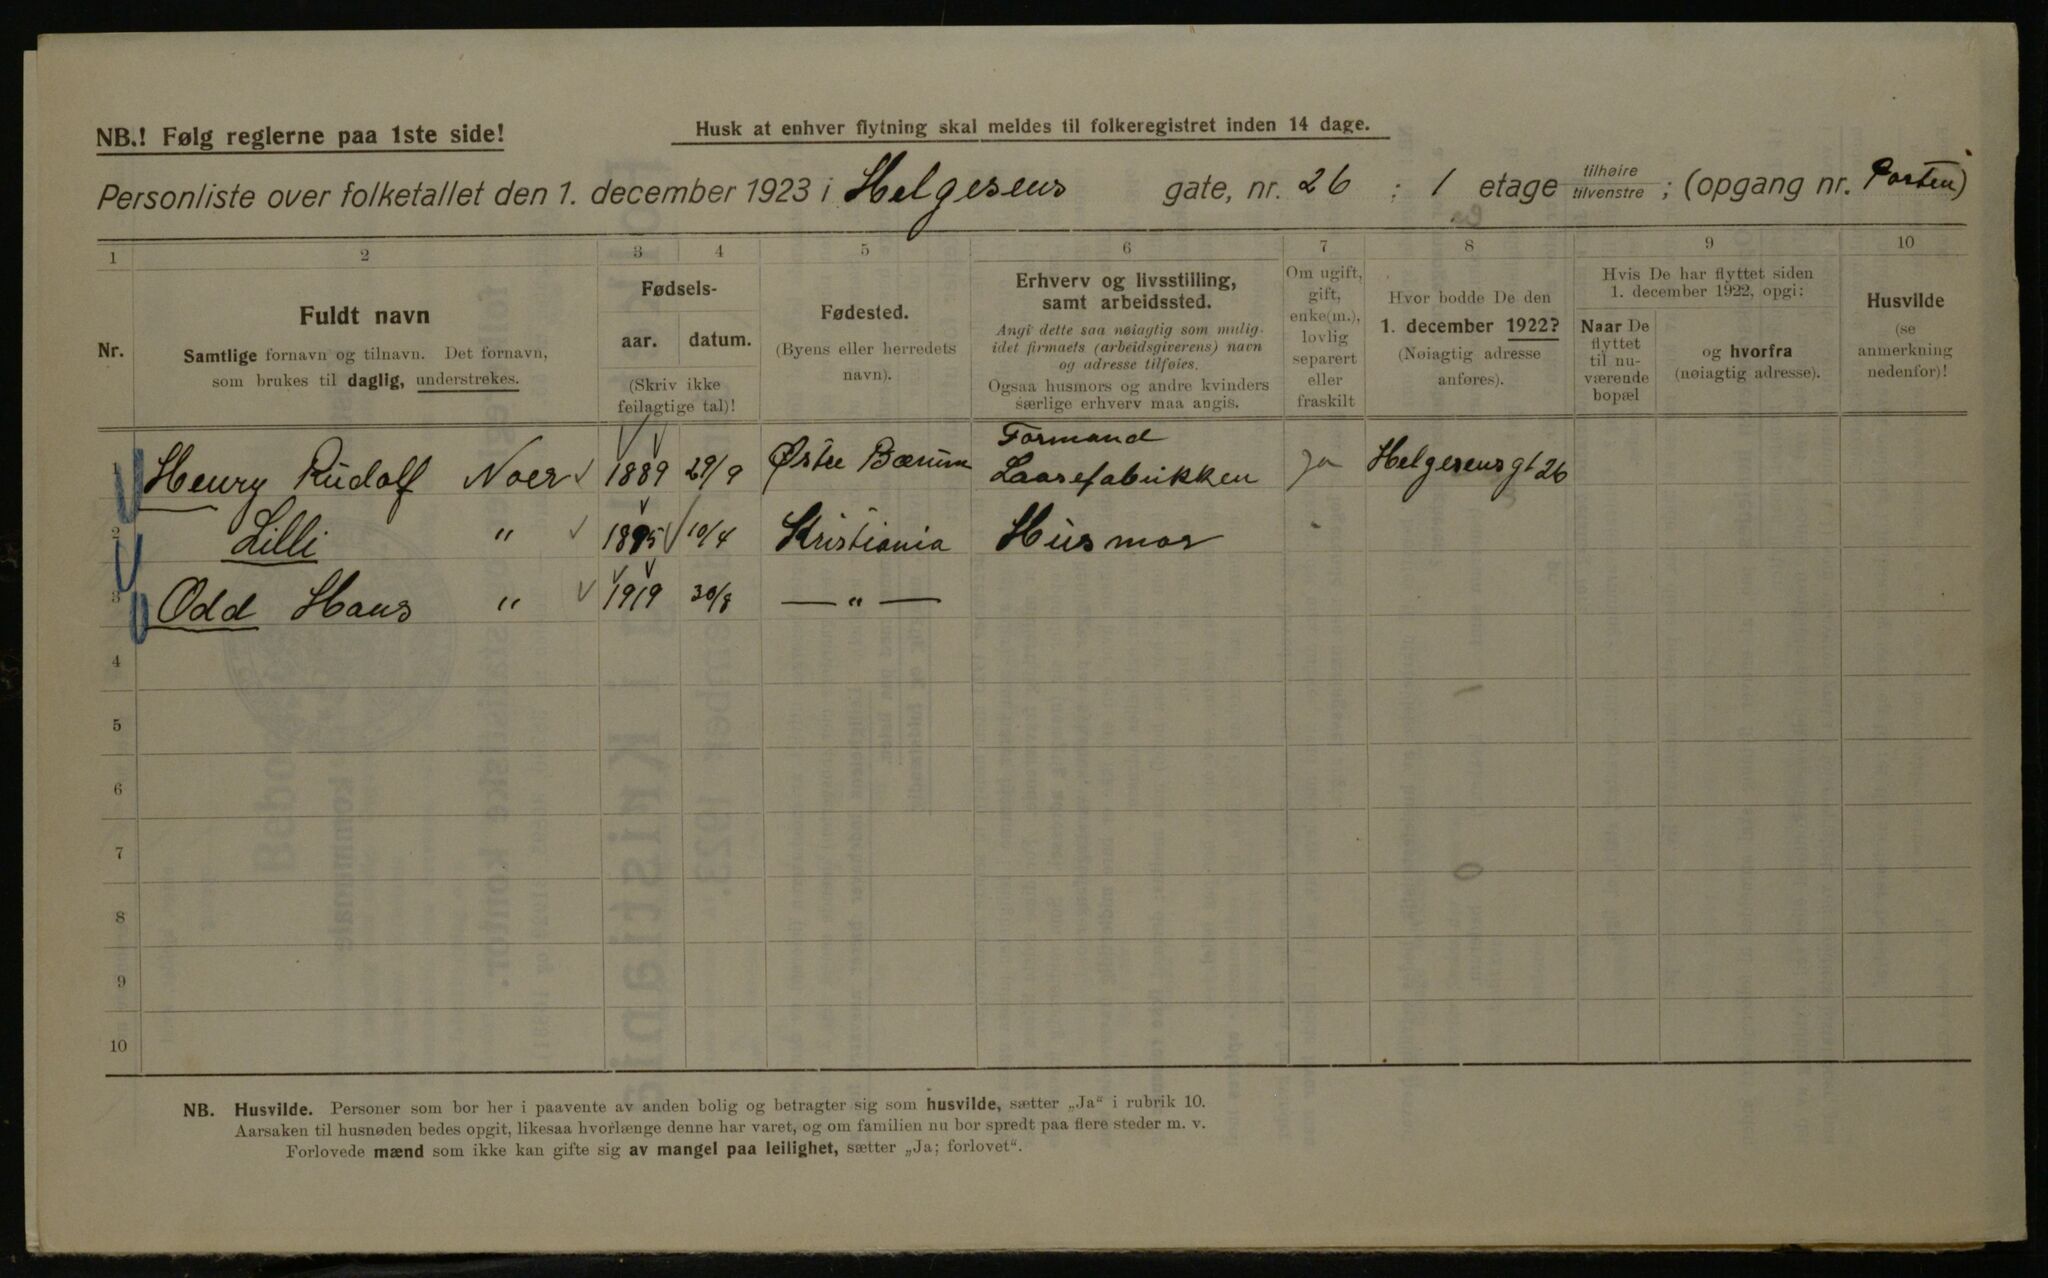 NB.! Følg reglerne paa 1ste side!
Husk at enhver flytning skal meldes til folkeregistret inden 14 dage.
Personliste over folketallet den 1. december 1923 i Helgesens gate, nr. 26 ; 1 etage tilhøire tilvenstre ; (opgang nr. Porten)
1 2 3 4 5 6 7 8 9 10
Nr.
Fuldt navn
Samtlige fornavn og tilnavn. Det fornavn,
som brukes til daglig, understrekes.
Fødsels-
aar. datum.
(Skriv ikke
feilagtige tal)!
Fødested.
(Byens eller herredets
navn).
Erhverv og livsstilling,
samt arbeidssted.
Angi dette saa nøiagtig som mulig.
idet firmaets (arbeidsgiverens) navn
og adresse tilføies.
Ogsaa husmors og andre kvinders
særlige erhverv maa angis.
Om ugift,
gift,
enke(m.),
lovlig
separert
eller
fraskilt
Hvor bodde De den
1. december 1922?
(Nøiagtig adresse
anføres).
Hvis De har flyttet siden
1. december 1922, opgi:
Naar De
flyttet
til nu-
værende
bopæl
og hvorfra
(nøiagtig adresse).
Husvilde
(se
anmerkning
nedenfor)!
1 Henry Rudolf Noer 1889 29/9 Østre Bærum Formand Laasefabrikken ja Helgesensgt 26
2 Lilli " 1895 10/4 Kristiania Husmor
3 Odd Hans " 1919 30/8 — " —
4
5
6
7
8
9
10
NB. Husvilde. Personer som bor her i paavente av anden bolig og betragter sig som husvilde, sætter „Ja“ i rubrik 10.
Aarsaken til husnøden bedes opgit, likesaa hvorlænge denne har varet, og om familien nu bor spredt paa flere steder m. v.
Forlovede mænd som ikke kan gifte sig av mangel paa leilighet, sætter „Ja; forlovet“.